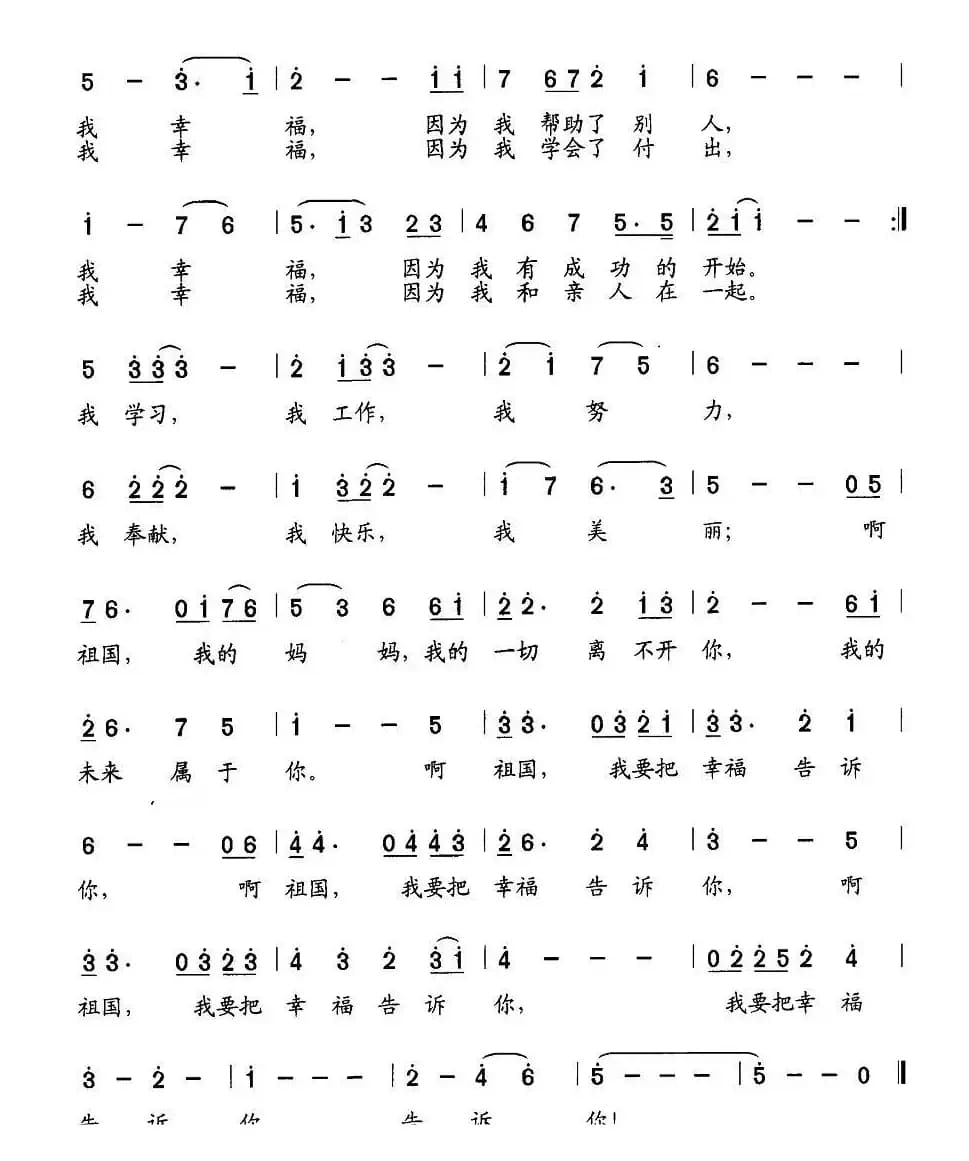 5 - 3̇· i̇ | 2̇ - - i̇ i̇ | 7 6 7 2̇ i̇ | 6 - - - |
我 幸 福, 因为 我 帮助了 别 人,
我 幸 福, 因为 我 学会了 付 出,
i̇ - 7 6 | 5· i̇ 3 2 3 | 4 6 7 5· 5 | 2̇ i̇ i̇ - - :‖
我 幸 福, 因为 我 有 成 功 的 开始。
我 幸 福, 因为 我 和 亲 人 在 一起。
5 3̇ 3̇ 3̇ - | 2̇ i̇ 3̇ 3̇ - | 2̇ i̇ 7 5 | 6 - - - |
我 学习, 我 工作, 我 努 力,
6 2̇ 2̇ 2̇ - | i̇ 3̇ 2̇ 2̇ - | i̇ 7 6· 3 | 5 - - 0 5 |
我 奉献, 我 快乐, 我 美 丽; 啊
7 6· 0 i̇ 7 6 | 5 3 6 6 i̇ | 2̇ 2̇· 2̇ i̇ 3̇ | 2̇ - - 6 i̇ |
祖国, 我的 妈 妈, 我的 一切 离 不开 你, 我的
2̇ 6· 7 5 | i̇ - - 5 | 3̇ 3̇· 0 3̇ 2̇ i̇ | 3̇ 3̇· 2̇ i̇ |
未来 属 于 你。 啊 祖国, 我要把 幸福 告 诉
6 - - 0 6 | 4̇ 4̇· 0 4̇ 4̇ 3̇ | 2̇ 6· 2̇ 4̇ | 3̇ - - 5 |
你, 啊 祖国, 我要把 幸福 告 诉 你, 啊
3̇ 3̇· 0 3̇ 2̇ 3̇ | 4̇ 3̇ 2̇ 3̇ i̇ | 4̇ - - - | 0 2̇ 2̇ 5 2̇ 4̇ |
祖国, 我要把 幸 福 告 诉 你, 我要把幸 福
3̇ - 2̇ - | i̇ - - - | 2̇ - 4̇ 6̇ | 5̇ - - - | 5̇ - - 0 ‖
告 诉 你 告 诉 你!